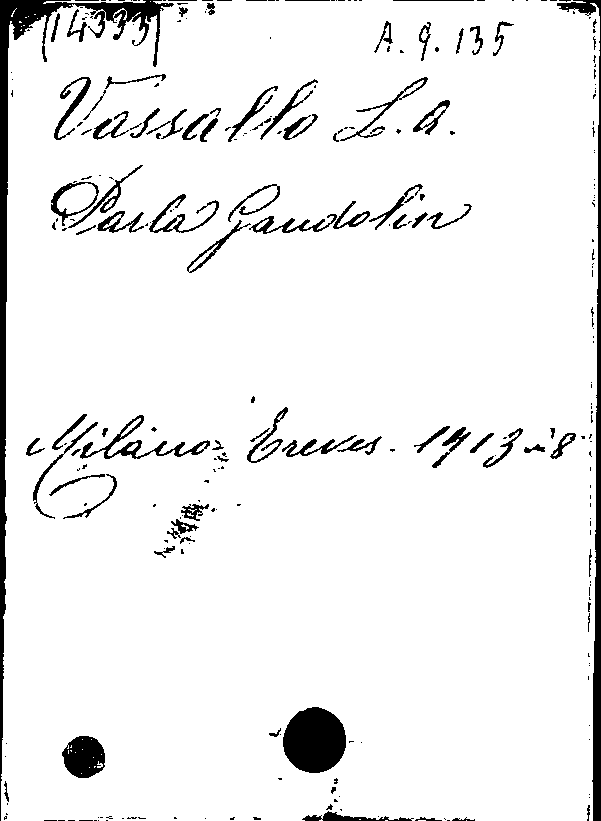 14333
A. 9. 135
Vassallo L. A.
Parla Gandolin
Milano Treves. 1913 in 8